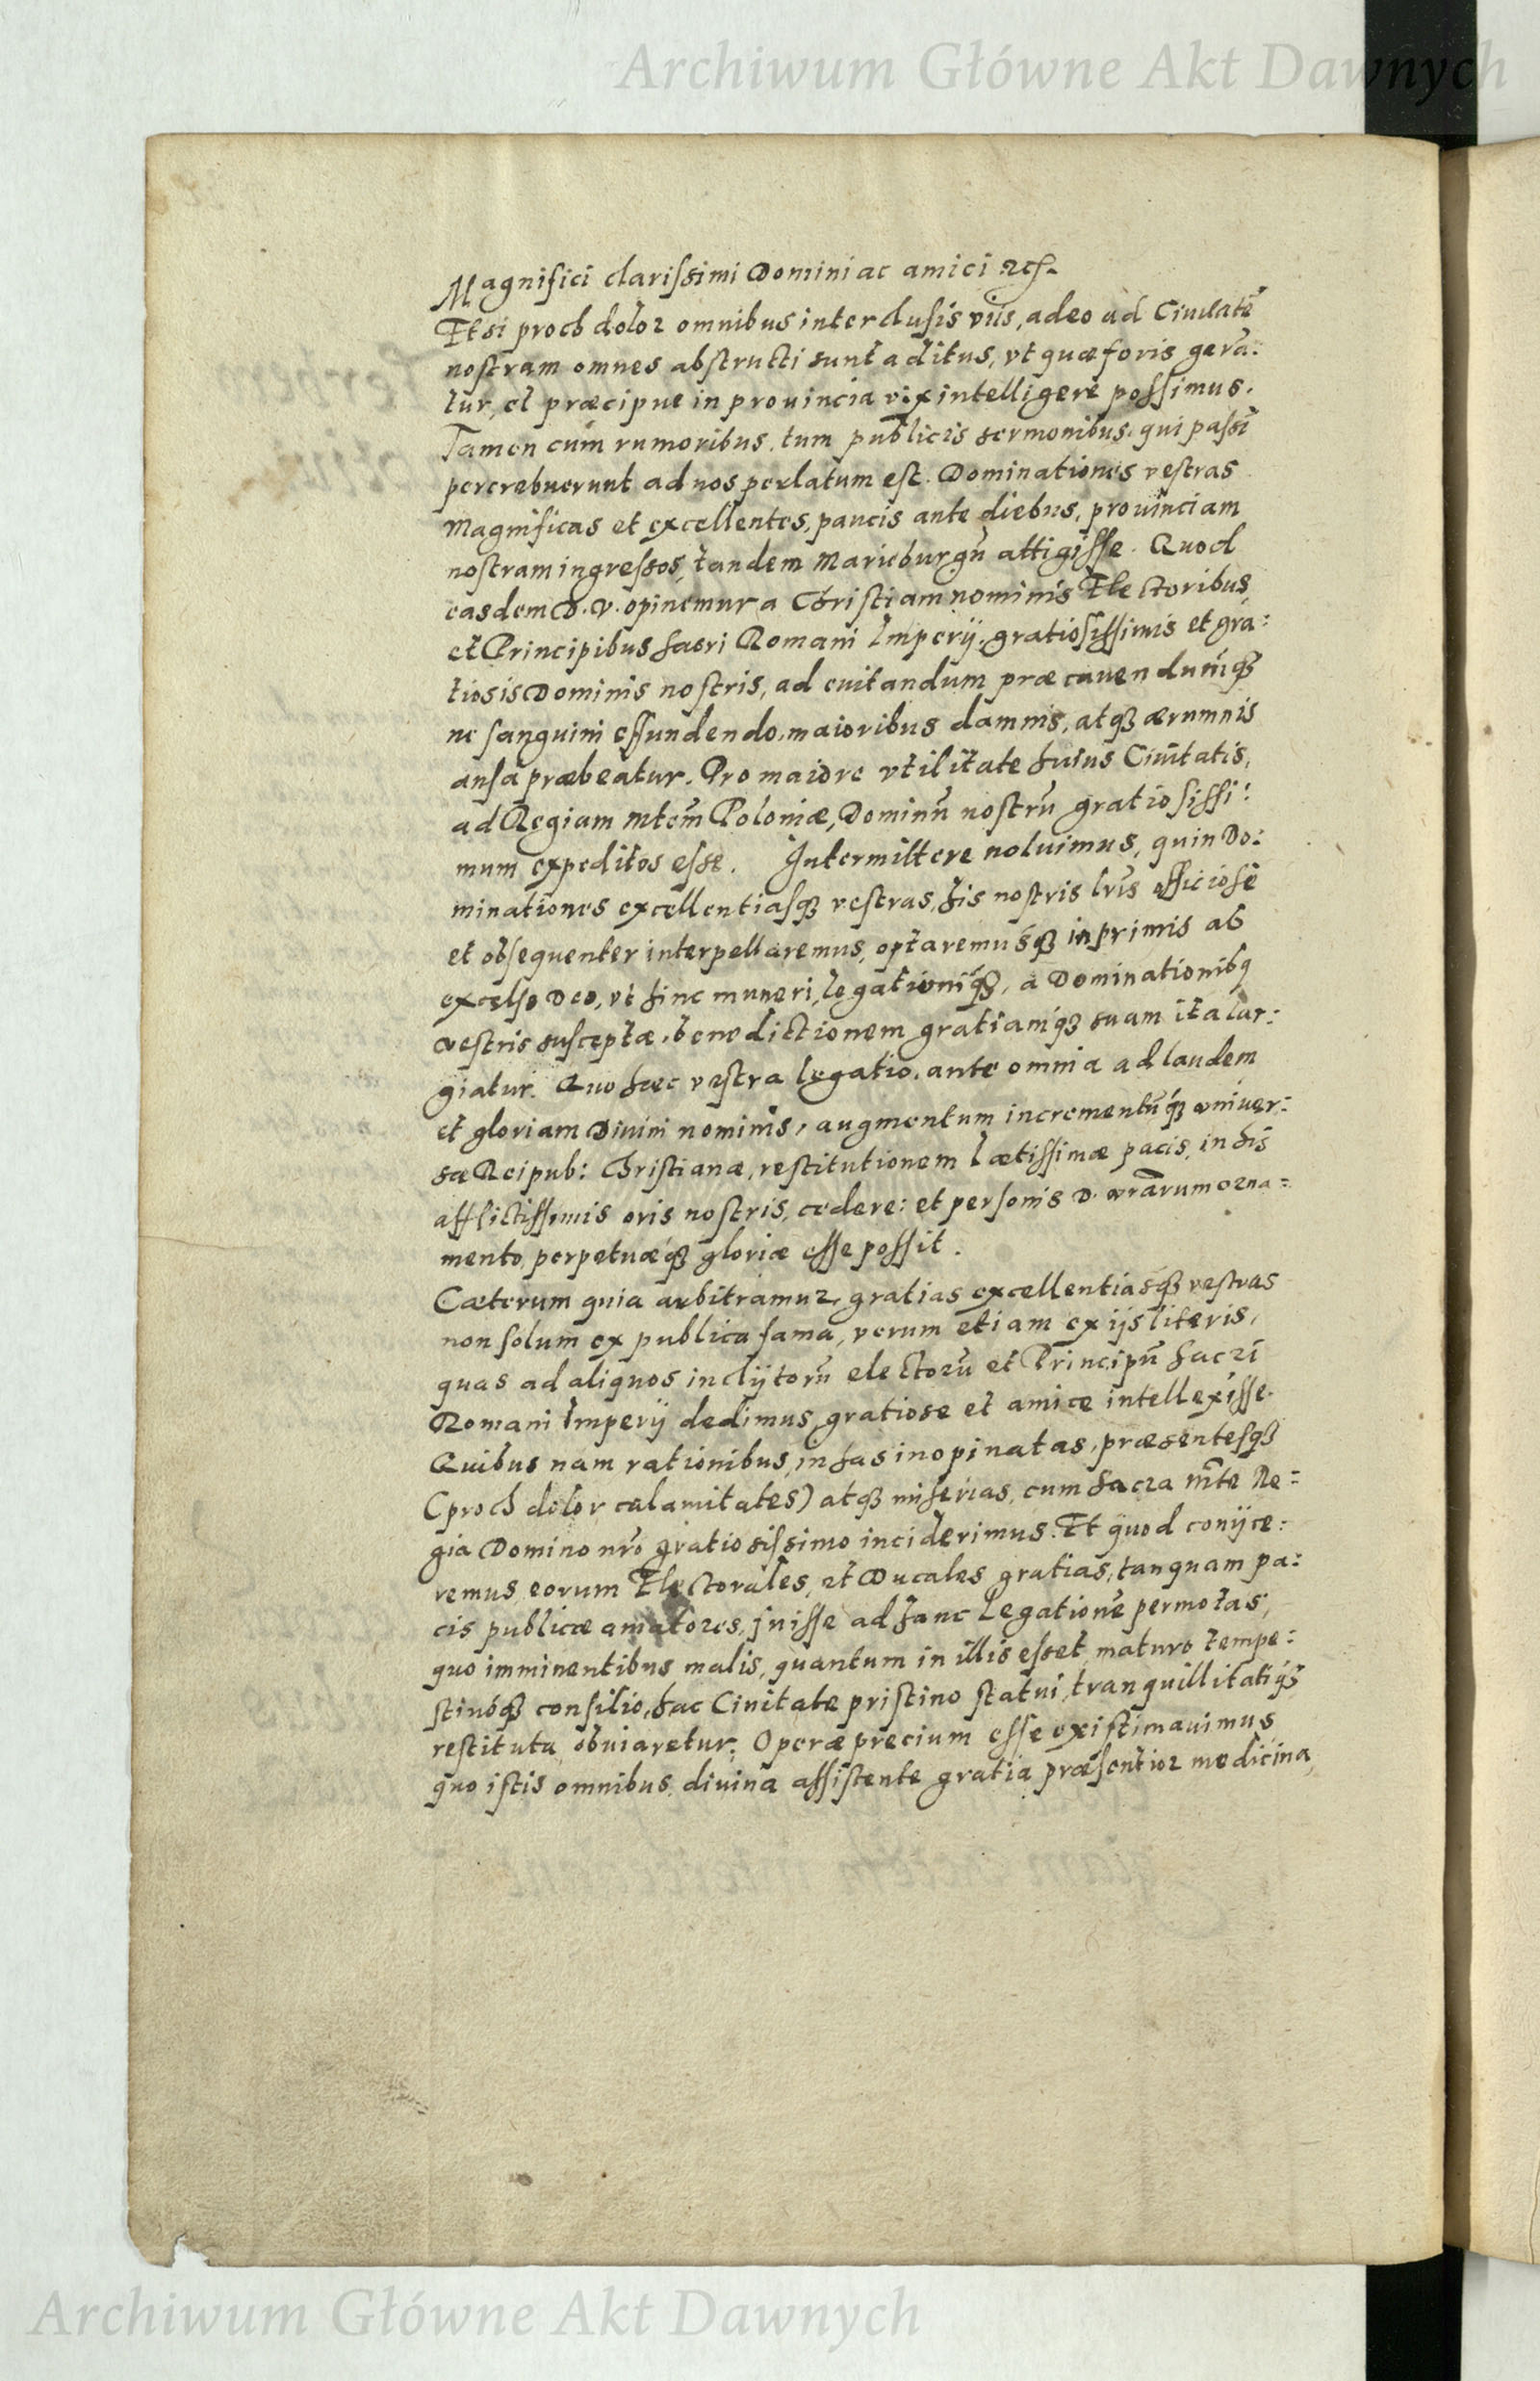 Archiwum Główne Akt Dawnych
Magnifici clarissimi Domini ac amici
Etsi proch dolor omnibus interclusis viis, adeo ad Ciuitatē
nostram omnes abstructi sunt aditus, vt quæ foris gerā:
tur, et præcipue in prouincia vix intelligere possimus.
Tamen cum rumoribus. tum publicis sermonibus. qui passī
percrebuerunt ad nos perlatum est. Dominationes vestras
Magnificas et excellentes, paucis ante diebus, prouinciam
nostram ingressos, tandem Marieburgū attigisse. Quod
easdem D. V. opinemur a Christiam nominis Electoribus
et Principibus sacri Romani Imperij. gratiosissimis et gra:
tiosis Dominis nostris, ad euitandum præcauendumq₃
ne sanguini effundendo, maioribus damnis, atq₃ ærumnis
ansa præbeatur. Pro maiore vtilitate huius Ciuitatis,
ad Regiam Mtem̄ Poloniæ, Dominū nostrū gratiosissi:
mum expeditos esse. Intermittere noluimus, quin Do:
minationes excellentiasq₃ vestras, his nostris lr̄is officiose
et obsequenter interpellaremus, optaremusq₃ inprimis ab
excelso Deo, vt hinc muneri, legationiq₃, a Dominationibq
vestris susceptæ, benedictionem gratiamq₃ suam ita lar:
giatur. Quo hæc vestra legatio. ante omnia ad laudem
et gloriam Diuini nominis, augmentum incrementūq₃ vniuer:
sæ Reipub: Christianæ, restitutionem lætissimæ pacis, in his
afflictissimis oris nostris, cedere: et personis D. vrārum orna=
mento, perpetuæq₃ gloriæ esse possit.
Cæterum quia arbitramur, gratias excellentiasq₃ vestras
non solum ex publica fama, verum etiam ex ijs literis,
quas ad aliquos inclijtorū electorū et Principū sacri
Romani Imperij dedimus, gratiose et amice intellexisse.
Quibus nam rationibus, in has inopinatas, præsentesq₃
(proch dolor calamitates) atq₃ miserias, cum sacra Mt̄e Re=
gia Domino nr̄o gratiosissimo inciderimus. Et quod conijce:
remus eorum Electorales, et Ducales gratias, tanquam pa:
cis publicæ amatores, juisse ad hanc Legationē permotas,
quo imminentibus malis, quantum in illis esset, maturo tempe:
stiuóq₃ consilio, hac Ciuitate pristino statui, tranquillitatiq₃
restituta obuiaretur. Operæ precium esse existimauimus
quo istis omnibus, diuina assistente gratia præsentior medicina,
Archiwum Główne Akt Dawnych